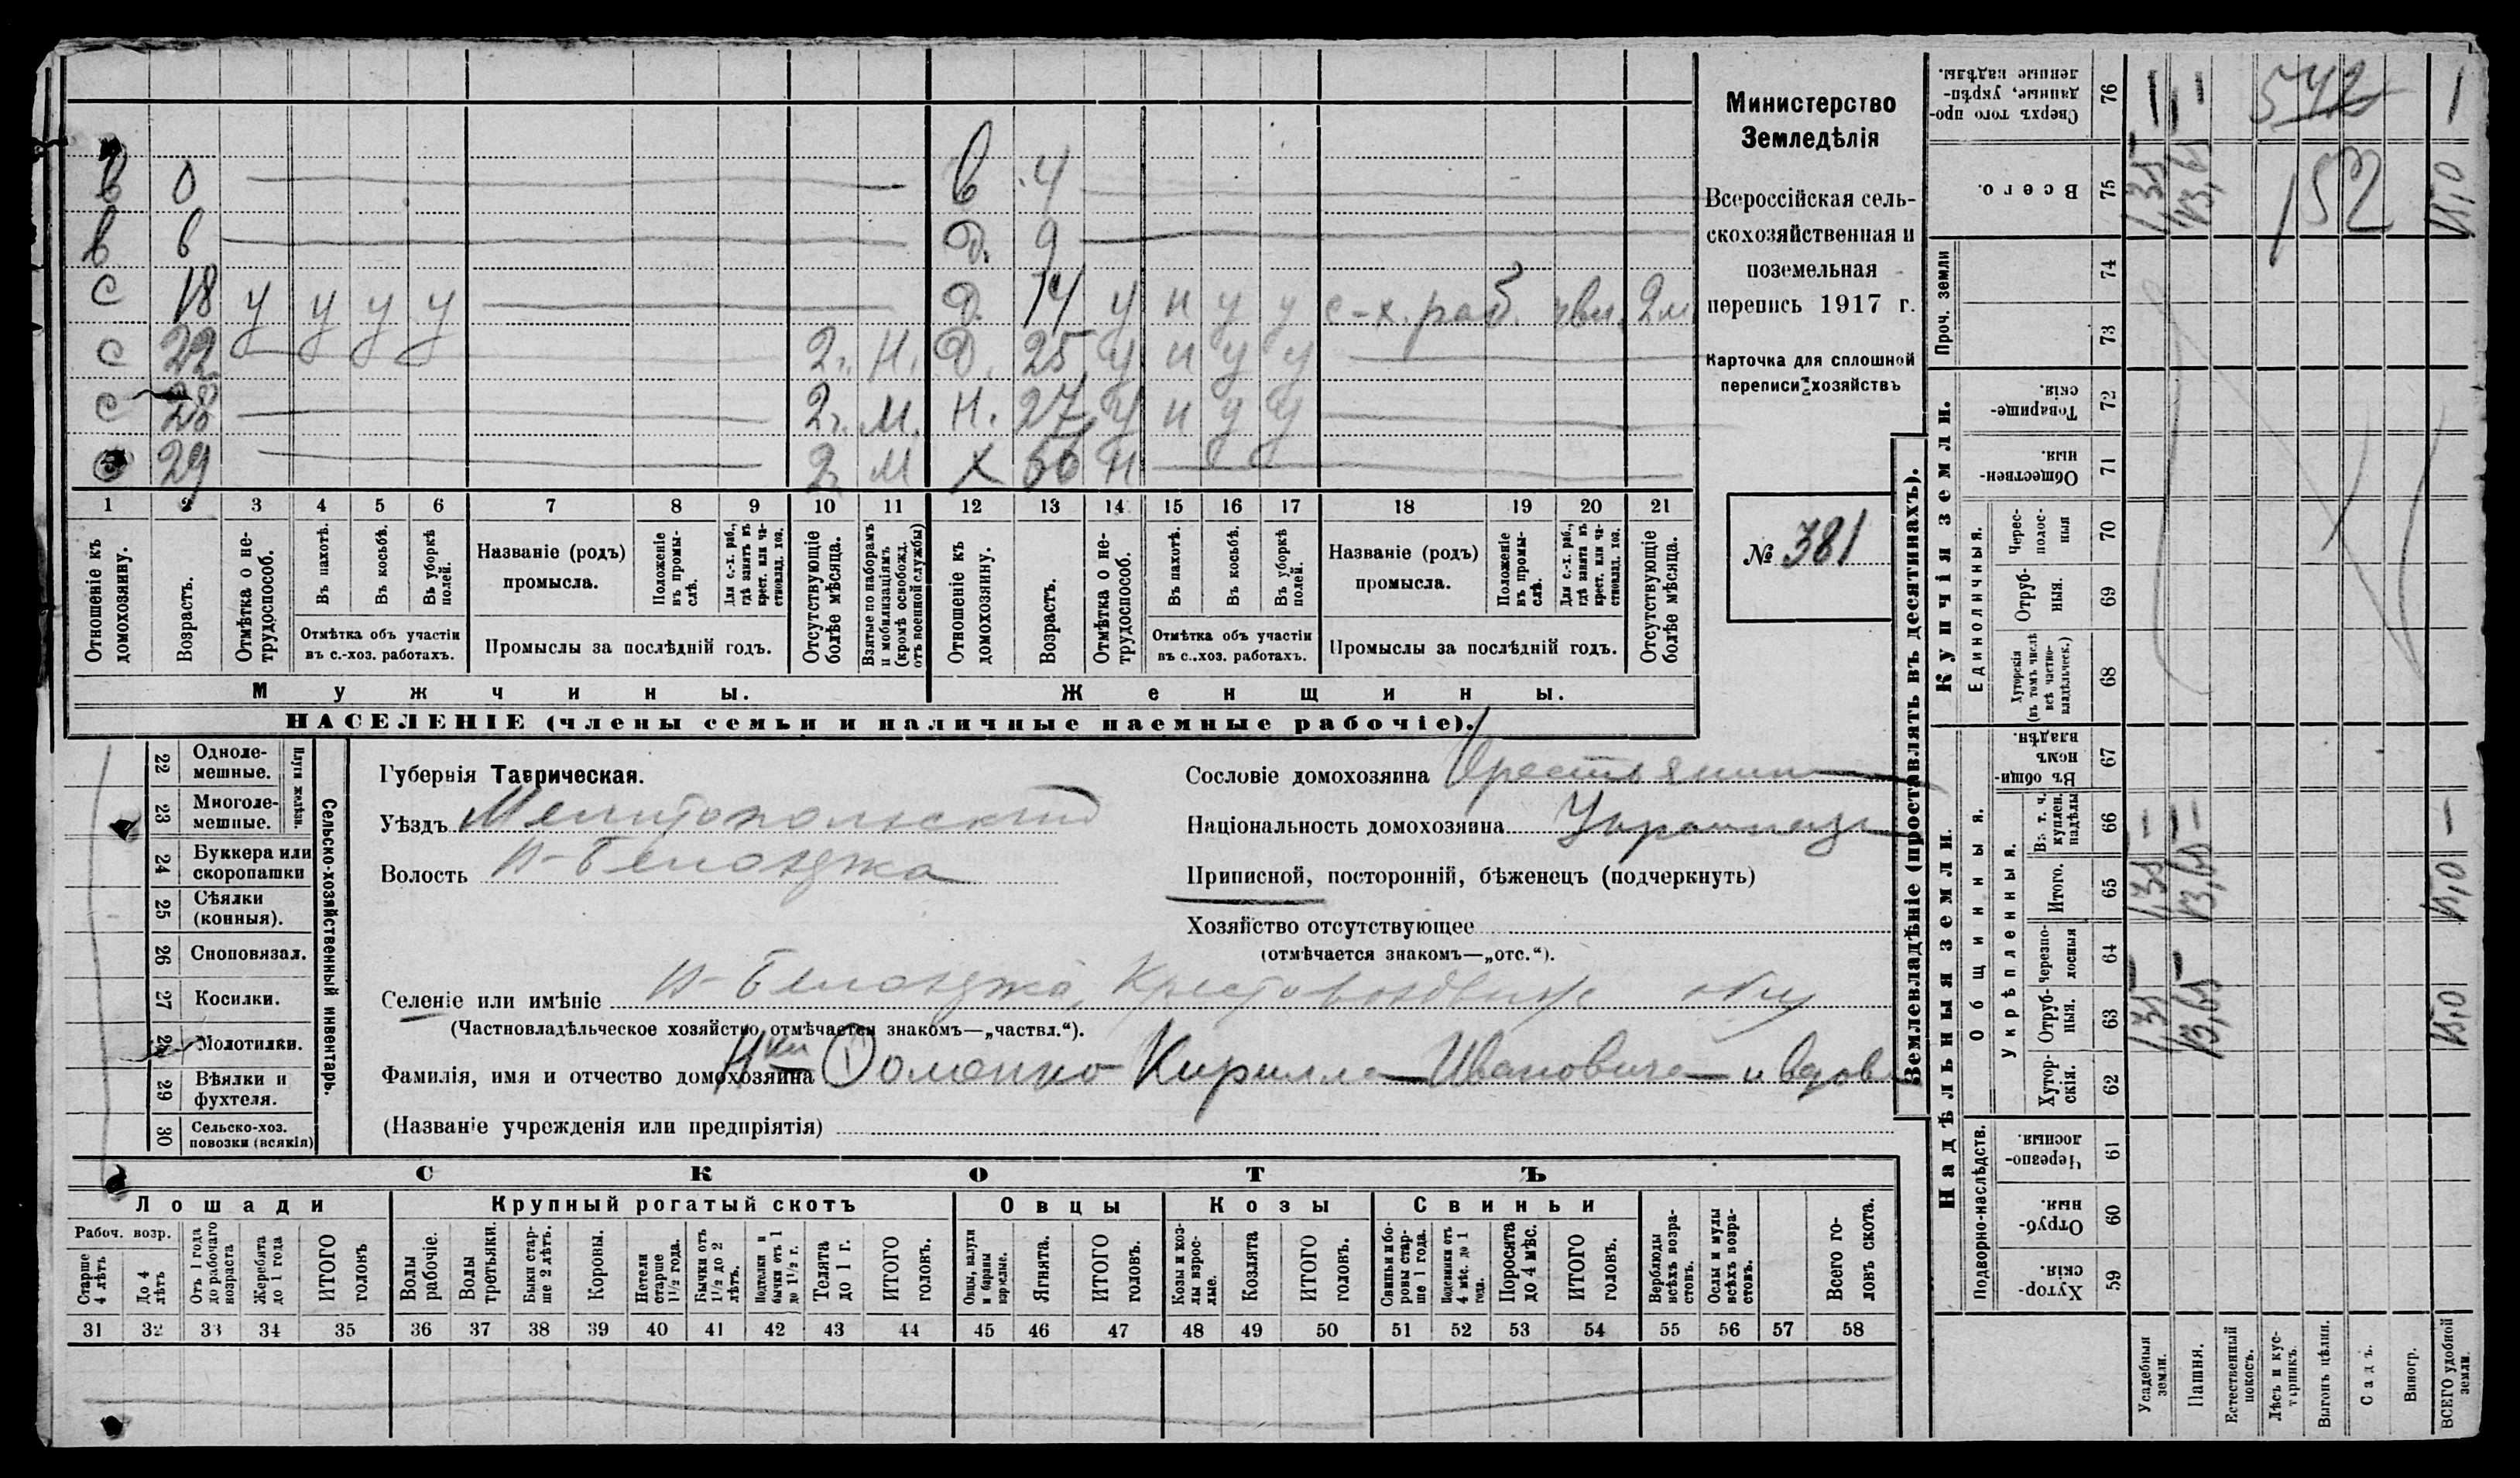 В 0 В 4
В 6 Д. 9
С 18 У У У У Д. 14 У Н У У с-х. раб. 2 м
С 22 2 г. Н. Д. 25 У Н У У
С 28 2 г. М. Н. 27 У Н У У
29 2 г. М Х 56 Н
1 2 3 4 5 6 7 8 9 10 11 12 13 14 15 16 17 18 19 20 21
Отношеніе къ домохозяину.
Возрастъ.
Отмѣтка о не-трудоспособ.
Въ пахотѣ.
Въ косьбѣ.
Въ уборкѣ полей.
Отмѣтка объ участіи
въ с.-хоз. работахъ.
Названіе (родъ)
промысла.
Положеніе въ промы-слѣ.
Для с.-х. раб., гдѣ занятъ въ крест. или ча-стновлад. хоз.
Промыслы за послѣдній годъ.
Отсутствующіе болѣе мѣсяца.
Взятые по наборамъ и мобилизаціямъ (кромѣ освобожд. отъ военной службы)
Отношеніе къ домохозяину.
Возрастъ.
Отмѣтка о не-трудоспособ.
Въ пахотѣ.
Въ косьбѣ.
Въ уборкѣ полей.
Отмѣтка объ участіи
въ с.-хоз. работахъ.
Названіе (родъ)
промысла.
Положеніе въ промы-слѣ.
Для с.-х. раб., гдѣ занята въ крест. или ча-стновлад. хоз.
Промыслы за послѣдній годъ.
Отсутствующіе болѣе мѣсяца.
Мужчины. Женщины.
НАСЕЛЕНІЕ (члены семьи и наличные наемные рабочіе).
Министерство
Земледѣлія
Всероссійская сель-
скохозяйственная и
поземельная
перепись 1917 г.
Карточка для сплошной
переписи хозяйствъ
№ 381
22 Одноле-мешные.
23 Многоле-мешные.
Плуги желѣзн.
24 Буккера или скоропашки
25 Сѣялки (конныя).
26 Сноповязал.
27 Косилки.
28 Молотилки.
29 Вѣялки и фухтеля.
30 Сельско-хоз. повозки (всякія)
Сельско-хозяйственный инвентарь.
Губернія Таврическая.
Уѣздъ Мелитопольский
Волость Н-Белозерка
Сословіе домохозяина Крестьянин
Національность домохозяина Украинец
Приписной, посторонній, бѣженецъ (подчеркнуть)
Хозяйство отсутствующее
(отмѣчается знакомъ—„отс.“).
Селеніе или имѣніе Н-Белозерка, Крестовоздвиж общ
(Частновладѣльческое хозяйство отмѣчается знакомъ—„частвл.“).
Фамилія, имя и отчество домохозяина Н-ки Доменко Кирилла Ивановича и вдов
(Названіе учрежденія или предпріятія)
СКОТЪ
Лошади Крупный рогатый скотъ Овцы Козы Свиньи
Рабоч. возр.
Старше 4 лѣтъ
До 4 лѣтъ
Отъ 1 года до рабочаго возраста
Жеребята до 1 года
ИТОГО головъ
Волы рабочіе.
Волы третьяки.
Быки стар-ше 2 лѣтъ.
Коровы.
Нетели старше 1½ года.
Бычки отъ 1½ до 2 лѣтъ.
Подтелки и бычки отъ 1 до 1½ г.
Телята до 1 г.
ИТОГО головъ.
Овцы, валухи и бараны взрослые.
Ягнята.
ИТОГО головъ.
Козы и коз-лы взрос-лые.
Козлята
ИТОГО головъ.
Свиньи и бо-ровы стар-ше 1 года.
Подсвинки отъ 4 мѣс. до 1 года.
Поросята до 4 мѣс.
ИТОГО головъ.
Верблюды всѣхъ возра-стовъ.
Ослы и мулы всѣхъ возра-стовъ.
Всего го-ловъ скота.
31 32 33 34 35 36 37 38 39 40 41 42 43 44 45 46 47 48 49 50 51 52 53 54 55 56 57 58
Землевладѣніе (проставлять въ десятинахъ).
Надѣльныя земли. Купчія земли. Проч. земли
Подворно-наслѣдств.
Общинныя.
Укрѣпленныя.
Единоличныя.
Хутор-скія. 59
Отруб-ныя. 60
Черезпо-лосныя. 61
Хутор-скія. 62
Отруб-ныя. 63 1,35 13,65 15,0
Черезпо-лосныя 64
Итого. 65 1,35 13,65 15,0
Въ т. ч. куплен. надѣлы 66
Въ общи-номъ владѣн. 67
Хуторскія (въ томъ числѣ всѣ частно-владѣльческ.) 68
Отруб-ныя. 69
Черес-полос-ныя 70
Обществен-ныя. 71
Товарище-скія. 72
73
74
Всего. 75 1,35 13,65 152 15,0
Сверхъ того про-данные, укрѣп-ленные надѣлы. 76 542
Усадебныя земли.
Пашня.
Естественный покосъ.
Лѣсъ и кус-тарникъ.
Выгонъ цѣлин.
Садъ.
Виногр.
ВСЕГО удобной земли.